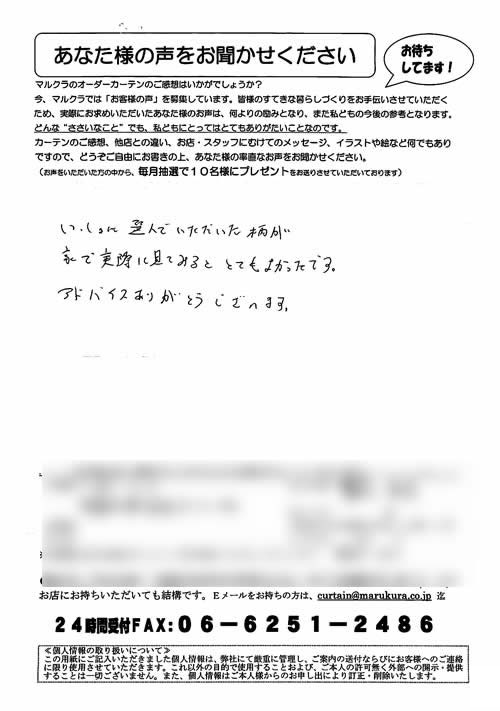 あなた様の声をお聞かせください
お待ち
してます!
マルクラのオーダーカーテンのご感想はいかがでしょうか?
今、マルクラでは「お客様の声」を募集しています。皆様のすてきな暮らしづくりをお手伝いさせていただく
ため、実際にお求めいただいたあなた様のお声は、何よりの励みとなり、また私どもの今後の参考となります。
どんな“ささいなこと”でも、私どもにとってはとてもありがたいことなのです。
カーテンのご感想、他店との違い、お店・スタッフにむけてのメッセージ、イラストや絵など何でもあり
ですので、どうぞご自由にお書きの上、あなた様の率直なお声をお聞かせください。
(お声をいただいた方の中から、毎月抽選で10名様にプレゼントをお送りさせていただいております)
いっしょに 選んでいただいた 柄が
家で実際に見てみると とてもよかったです。
アドバイスありがとうございます。
お店にお持ちいただいても結構です。Eメールをお持ちの方は、curtain@marukura.co.jp 迄
24時間受付FAX:06-6251-2486
≪個人情報の取り扱いについて≫
この用紙にご記入いただきました個人情報は、弊社にて厳重に管理し、ご案内の送付ならびにお客様へのご連絡
に限り使用させていただきます。これ以外の目的で使用することおよび、ご本人の許可無く外部への開示・提供
することは一切ございません。また、個人情報はご本人様からのお申し出により訂正・削除いたします。